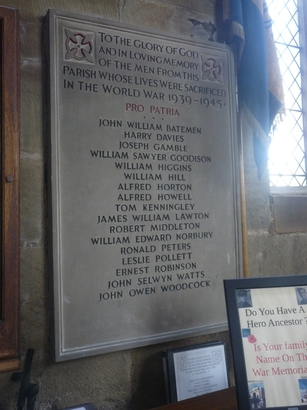 TO THE GLORY OF GOD
AND IN LOVING MEMORY
OF THE MEN FROM THIS
PARISH WHOSE LIVES WERE SACRIFICED
IN THE WORLD WAR 1939-1945
PRO PATRIA
JOHN WILLIAM BATEMEN
HARRY DAVIES
JOSEPH GAMBLE
WILLIAM SAWYER GOODISON
WILLIAM HIGGINS
WILLIAM HILL
ALFRED HORTON
ALFRED HOWELL
TOM KENNINGLEY
JAMES WILLIAM LAWTON
ROBERT MIDDLETON
WILLIAM EDWARD NORBURY
RONALD PETERS
LESLIE POLLETT
ERNEST ROBINSON
JOHN SELWYN WATTS
JOHN OWEN WOODCOCK
Do You Have A
Hero Ancestor
Is Your family
Name On The
War Memorial